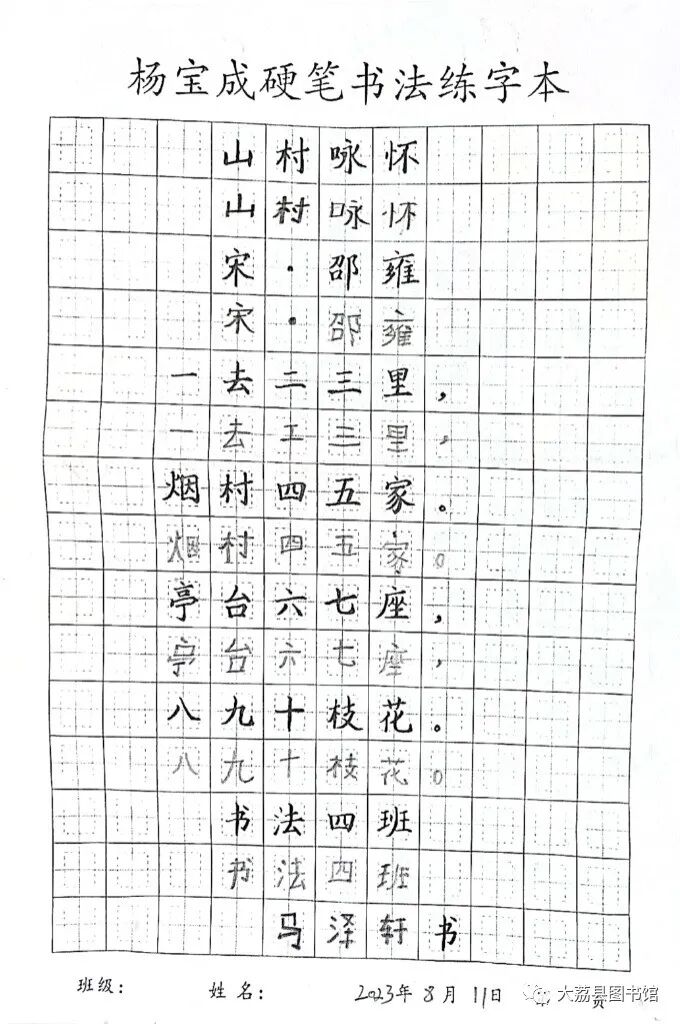 杨宝成硬笔书法练字本
山村咏怀
山村咏怀
宋·邵雍
宋·邵雍
一去二三里，
一去工三里，
烟村四五家。
烟村四五家。
亭台六七座，
亭台六七座，
八九十枝花。
八九十枝花。
书法四班
书法四班
马泽轩书
班级： 姓名： 2023年8月11日 页
大荔县图书馆